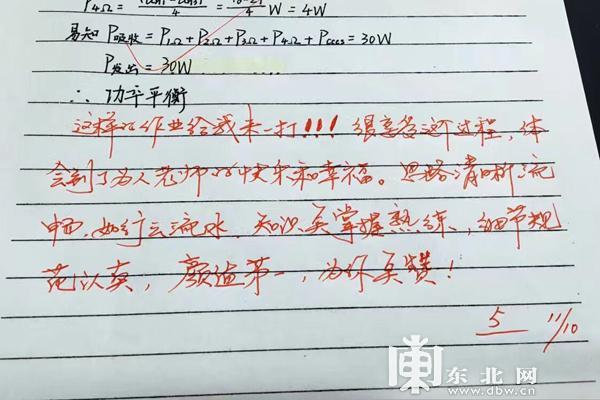 P4Ω = 4 = 4 W = 4W
易知 P吸收 = P1Ω + P2Ω + P3Ω + P4Ω + Pcccs = 30W
P发出 = 30W
∴ 功率平衡
这样的作业给我来一打!!! 很享受这个过程，体
会到了为人老师的快乐和幸福。思路清晰流
畅，如行云流水，知识点掌握熟练，细节规
范认真，颜值第一，为你点赞！
5 11/10
东北网
www.dbw.cn